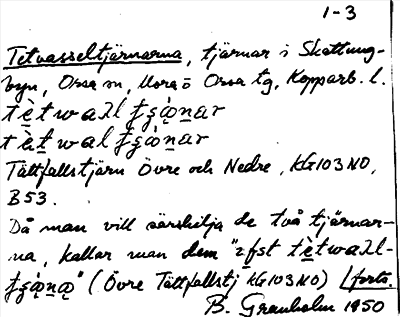 1-3
Tetvasseltjärnarna, tjärnar i Skattung-
byn, Orsa sn, Mora o Orsa tg, Kopparb. l.
Tättfallstjärn Övre och Nedre, KG103NO,
B53.
Då man vill särskilja de två tjärnar-
na, kallar man dem
(Övre Tättfallstj KG103NO) forts.
B. Granholm 1950